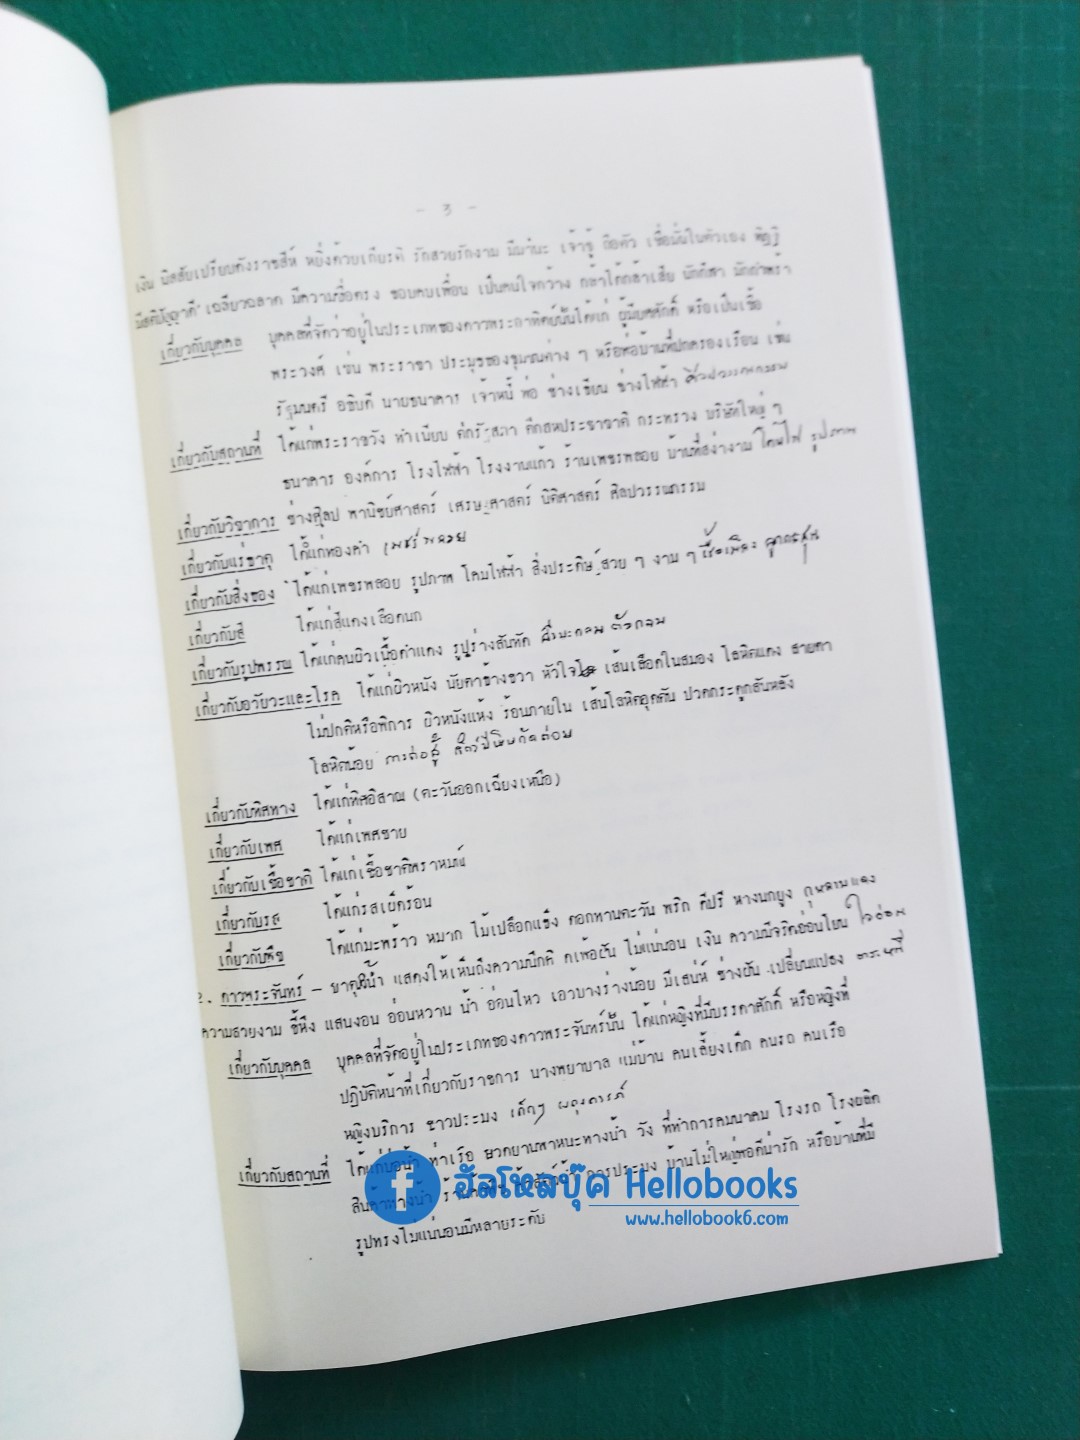 - 3 -
เงิน นิสัยเปรียบดังราชสีห์ หยิ่งด้วยเกียรติ รักสวยรักงาม มีมานะ เจ้าชู้ ถือตัว เชื่อมั่นในตัวเอง ทิฏฐิ
มีสติปัญญาดี เฉลียวฉลาด มีความซื่อตรง ชอบคบเพื่อน เป็นคนใจกว้าง กล้าได้กล้าเสีย นักกีฬา
เกี่ยวกับบุคคล บุคคลที่จัดว่าอยู่ในประเภทของดาวพระอาทิตย์นั้นได้แก่ ผู้มียศศักดิ์ หรือเป็นเชื้อ
พระวงศ์ เช่น พระราชา ประมุขของชุมชนต่าง ๆ หรือพ่อบ้านที่ปกครองเรือน เช่น
รัฐมนตรี อธิบดี นายธนาคาร เจ้าหนี้ พ่อ ช่างเขียน ช่างไฟฟ้า ศิลปวรรณกรรม
เกี่ยวกับสถานที่ ได้แก่พระราชวัง ทำเนียบ ตึกรัฐสภา ตึกสหประชาชาติ กระทรวง บริษัทใหญ่ ๆ
ธนาคาร องค์การ โรงไฟฟ้า โรงงานแก้ว ร้านเพชรพลอย บ้านที่สง่างาม โคมไฟ รูปภาพ
เกี่ยวกับวิชาการ ช่างศิลป พานิชย์ศาสตร์ เศรษฐศาสตร์ นิติศาสตร์ ศิลปวรรณกรรม
เกี่ยวกับแร่ธาตุ ได้แก่ทองคำ เพชรพลอย
เกี่ยวกับสิ่งของ ได้แก่เพชรพลอย รูปภาพ โคมไฟฟ้า สิ่งประดิษฐ์สวย ๆ งาม ๆ เชื้อเพลิง ลูกกระสุน
เกี่ยวกับสี ได้แก่สีแดงเลือดนก
เกี่ยวกับรูปพรรณ ได้แก่คนผิวเนื้อดำแดง รูปร่างสันทัด ศีรษะกลม ตัวกลม
เกี่ยวกับอวัยวะและโรค ได้แก่ผิวหนัง นัยตาข้างขวา หัวใจ เส้นเลือดในสมอง โลหิตแดง สายตา
ไม่ปกติหรือพิการ ผิวหนังแห้ง ร้อนภายใน เส้นโลหิตอุดตัน ปวดกระดูกสันหลัง
โลหิตน้อย การต่อสู้ สัตว์มีพิษกัดต่อย
เกี่ยวกับทิศทาง ได้แก่ทิศอิสาณ (ตะวันออกเฉียงเหนือ)
เกี่ยวกับเพศ ได้แก่เพศชาย
เกี่ยวกับเชื้อชาติ ได้แก่เชื้อชาติพราหมณ์
เกี่ยวกับรส ได้แก่รสเผ็ดร้อน
เกี่ยวกับพืช ได้แก่มะพร้าว หมาก ไม้เปลือกแข็ง ดอกทานตะวัน พริก ดีปรี หางนกยูง กุหลาบแดง
2. ดาวพระจันทร์ - ธาตุน้ำ แสดงให้เห็นถึงความนึกคิด เพ้อฝัน ไม่แน่นอน เงิน ความมีจริตอ่อนโยน ใจอ่อน
ความสวยงาม ขี้หึง แสนงอน อ่อนหวาน น้ำ อ่อนไหว เอวบางร่างน้อย มีเสน่ห์ ช่างฝัน เปลี่ยนแปลง ตระหนี่
เกี่ยวกับบุคคล บุคคลที่จัดอยู่ในประเภทของดาวพระจันทร์นั้น ได้แก่หญิงที่มีบรรดาศักดิ์ หรือหญิงที่
ปฏิบัติหน้าที่เกี่ยวกับราชการ นางพยาบาล แม่บ้าน คนเลี้ยงเด็ก คนรถ คนเรือ
หญิงบริการ ชาวประมง เด็กๆ ผดุงครรภ์
เกี่ยวกับสถานที่ ได้แก่บ่อน้ำ ท่าเรือ ยวดยานพาหนะทางน้ำ วัง ที่ทำการคมนาคม โรงรถ โรงผลิต
สินค้าทางน้ำ การประมง บ้านไม่ใหญ่พอดีน่ารัก หรือบ้านที่มี
รูปทรงไม่แน่นอนมีหลายระดับ
ฮัลโหลบุ๊ค Hellobooks
www.hellobook6.com